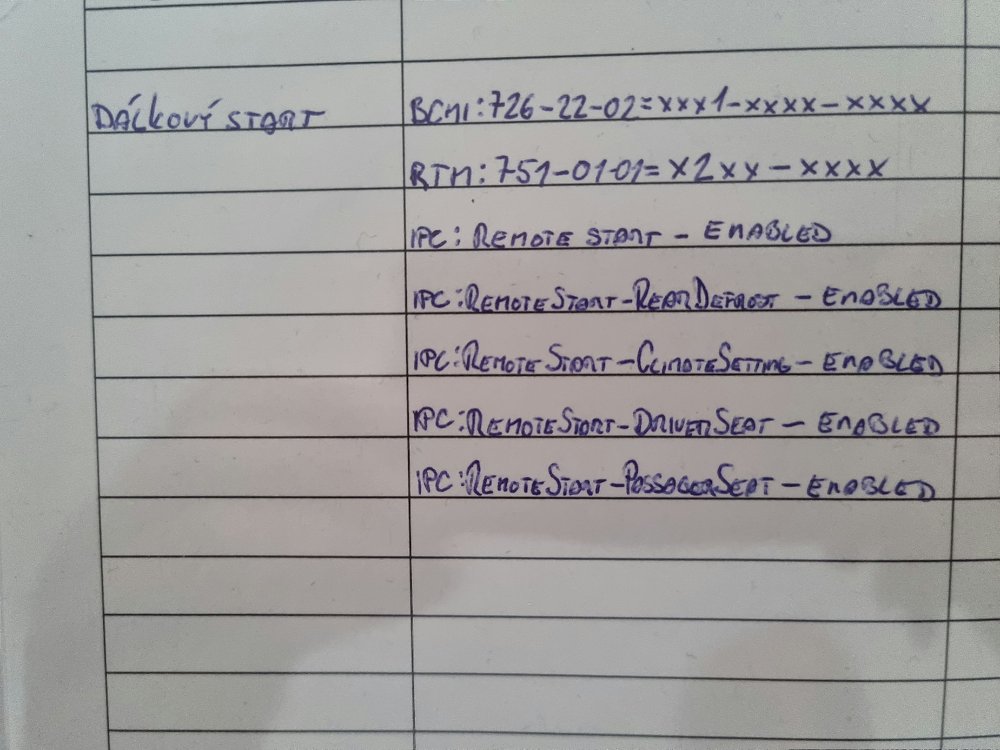 DÁLKOVÝ START
BCM: 726-22-02=xxx1-xxxx-xxxx
RTM: 751-01-01= x2xx - xxxx
IPC: REMOTE START - ENABLED
IPC: REMOTESTART-REARDEFROST - ENABLED
IPC: REMOTESTART-CLIMATESETTING - ENABLED
IPC: REMOTESTART-DRIVERSEAT - ENABLED
IPC: REMOTESTART-PASSAGERSEAT - ENABLED